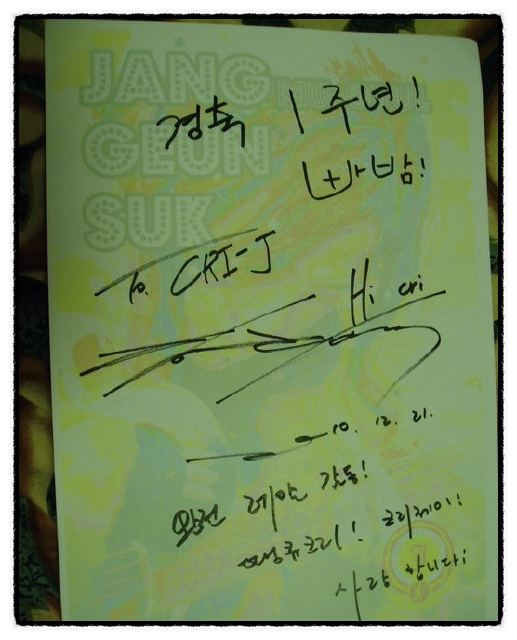 JANG
GEUN
SUK
경축 1주년!
빠밤!
To. CRI-J
Hi cri
10. 12. 21.
완전 레알 감동!
땡큐크리! 크리제이!
사랑 합니다!